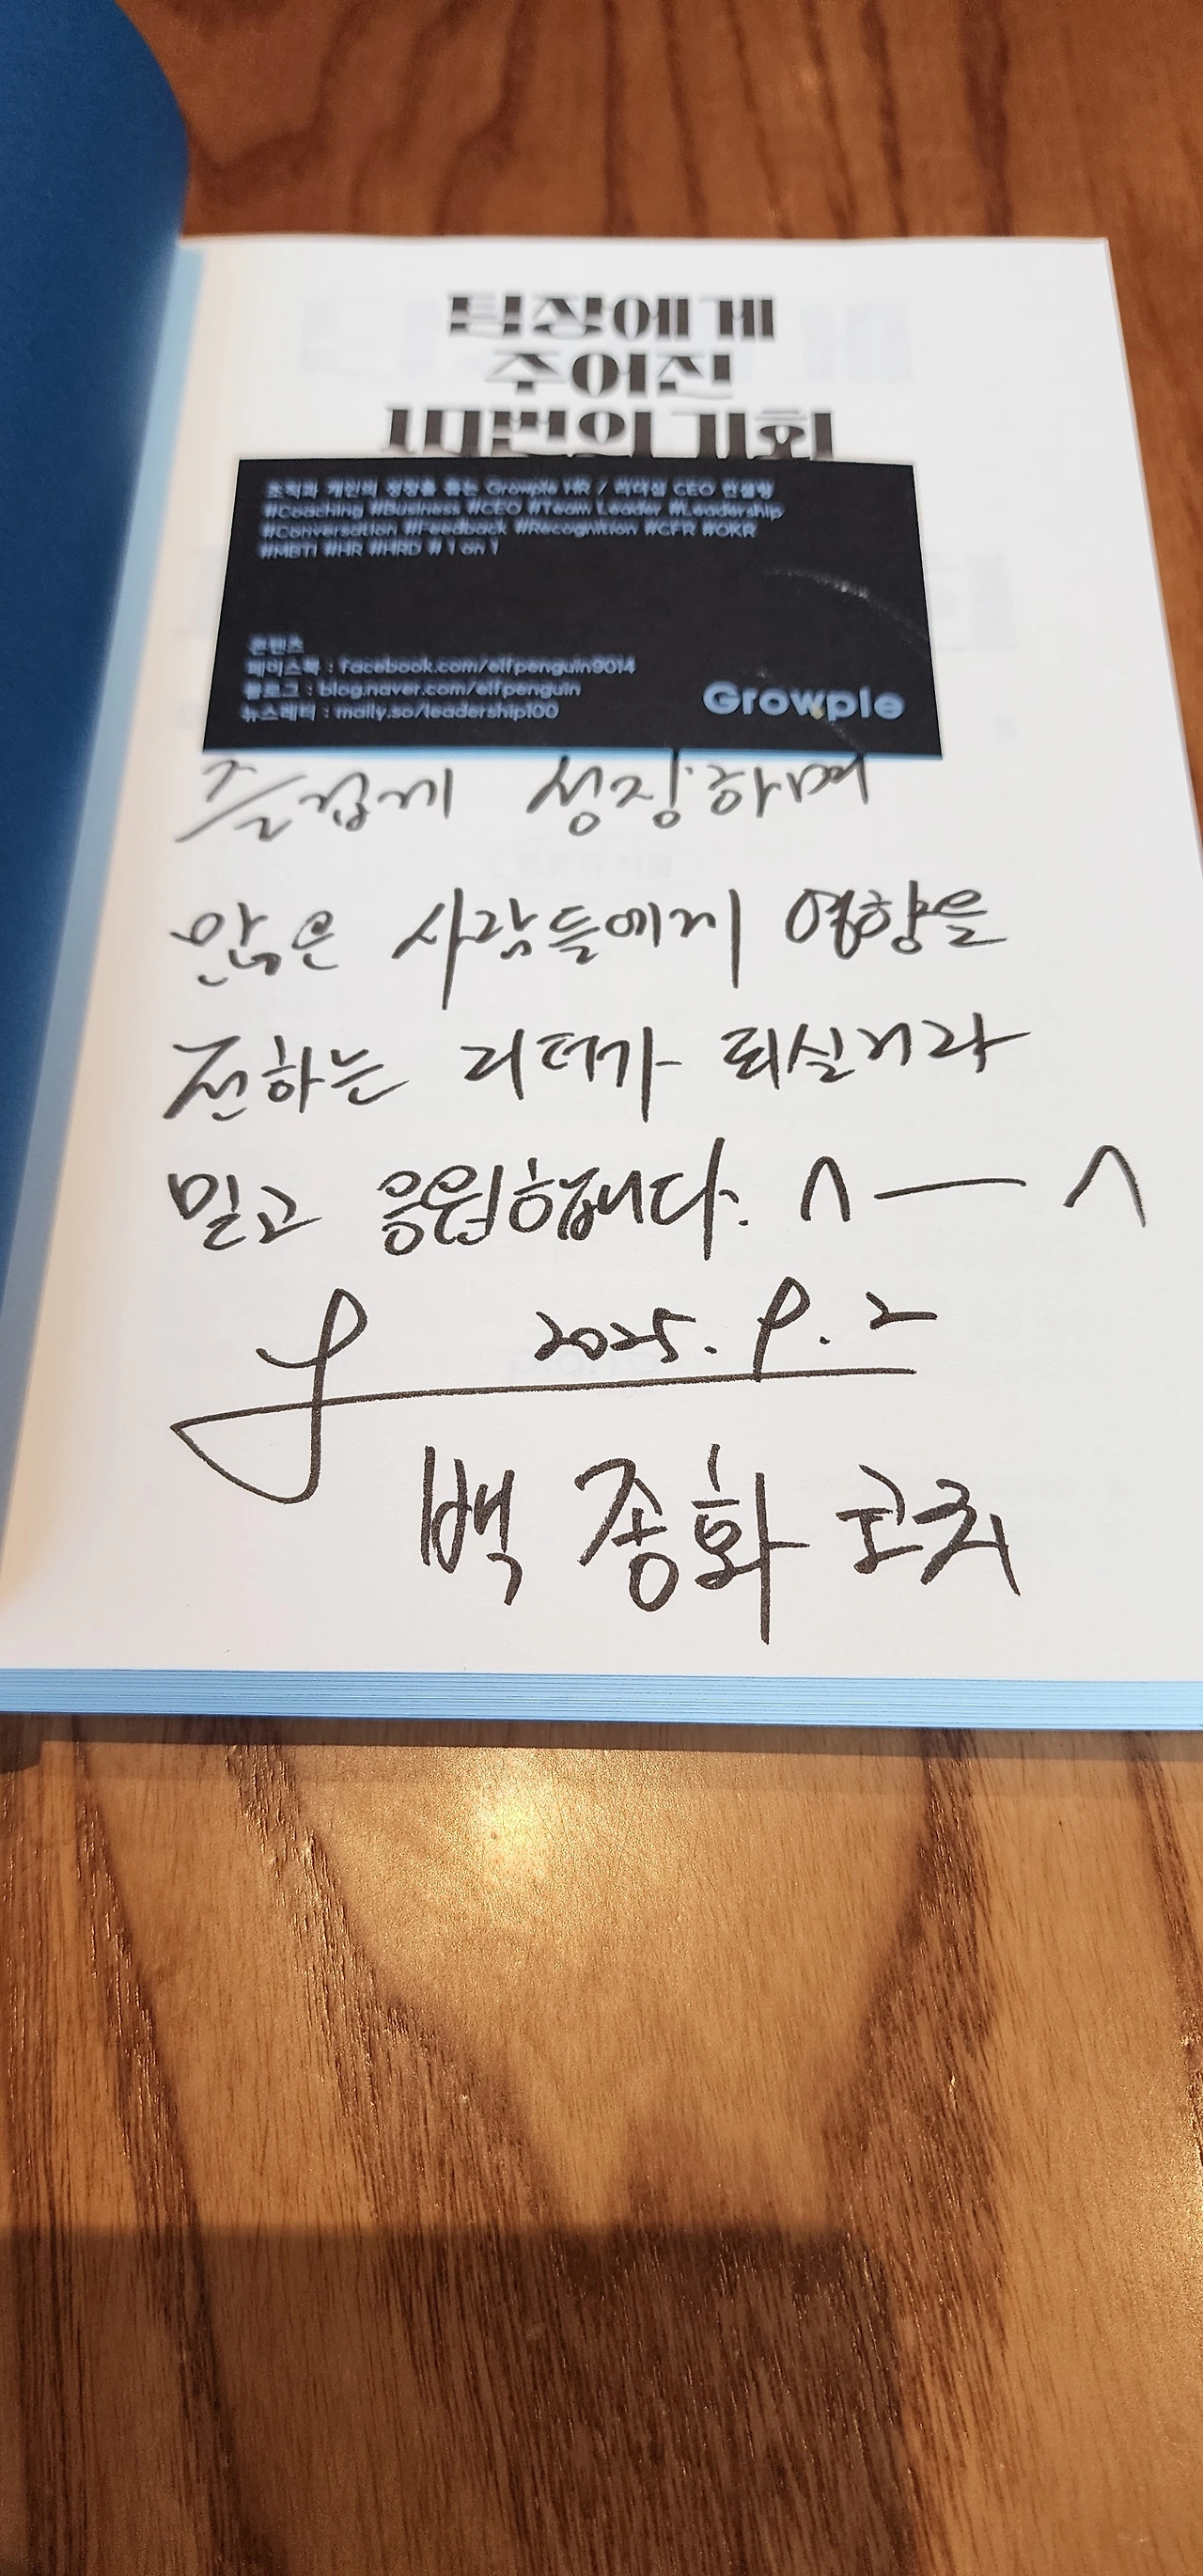 팀장에게
주어진
10번의 기회
조직과 개인의 성장을 돕는 Growple HR / 리더십 CEO 컨설팅
#Coaching #Business #CEO #Team Leader #Leadership
#Conversation #Feedback #Recognition #CFR #OKR
#MBTI #HR #HRD #1 on 1
콘텐츠
페이스북 : facebook.com/elfpenguin9014
블로그 : blog.naver.com/elfpenguin
뉴스레터 : maily.so/leadership100
Growple
즐겁게 성장하며
많은 사람들에게 영향을
전하는 리더가 되실거라
믿고 응원합니다. ^—^
2025. 9. 2
백종화 코치